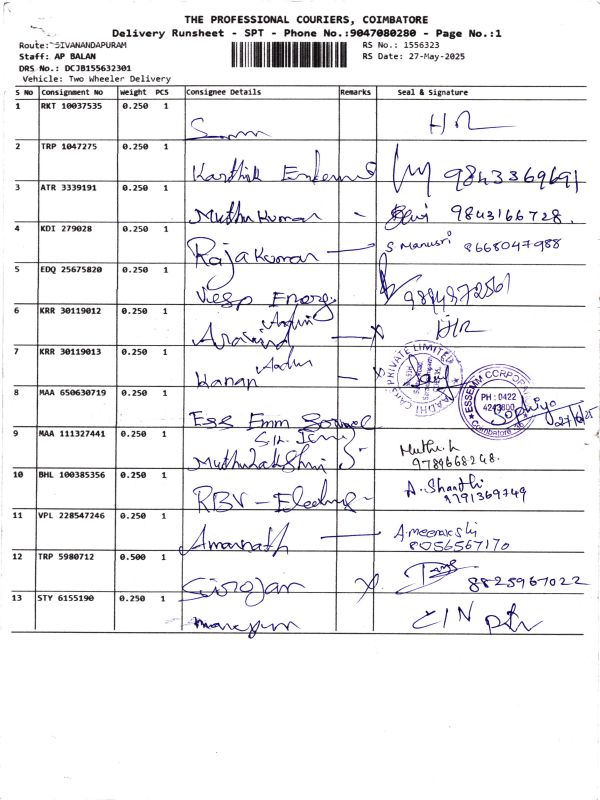 THE PROFESSIONAL COURIERS, COIMBATORE
Delivery Runsheet - SPT - Phone No.:9047080280 - Page No.:1
Route: SIVANANDAPURAM RS No.: 1556323
Staff: AP BALAN RS Date: 27-May-2025
DRS No.: DCJB155632301
Vehicle: Two Wheeler Delivery
S No Consignment No Weight PCS Consignee Details Remarks Seal & Signature
1 RKT 10037535 0.250 1
2 TRP 1047275 0.250 1 Karthik 9843369691
3 ATR 3339191 0.250 1 Muthu Kumar 9843166728.
4 KDI 279028 0.250 1 Raja Kumar S Manusri 8668047988
5 EDQ 25675820 0.250 1 Energy
6 KRR 30119012 0.250 1 Aravind
7 KRR 30119013 0.250 1 PRIVATE LIMITED
8 MAA 650630719 0.250 1 Ess Emm ESSEMM CORPORA PH : 0422 Coimbatore
9 MAA 111327441 0.250 1 Muthulakshmi Muthu.L 9789668248.
10 BHL 100385356 0.250 1 RBV - A. Shanthi 9791369749
11 VPL 228547246 0.250 1 Amarnath A.meenakshi 8056567170
12 TRP 5980712 0.500 1 8825967022
13 STY 6155190 0.250 1